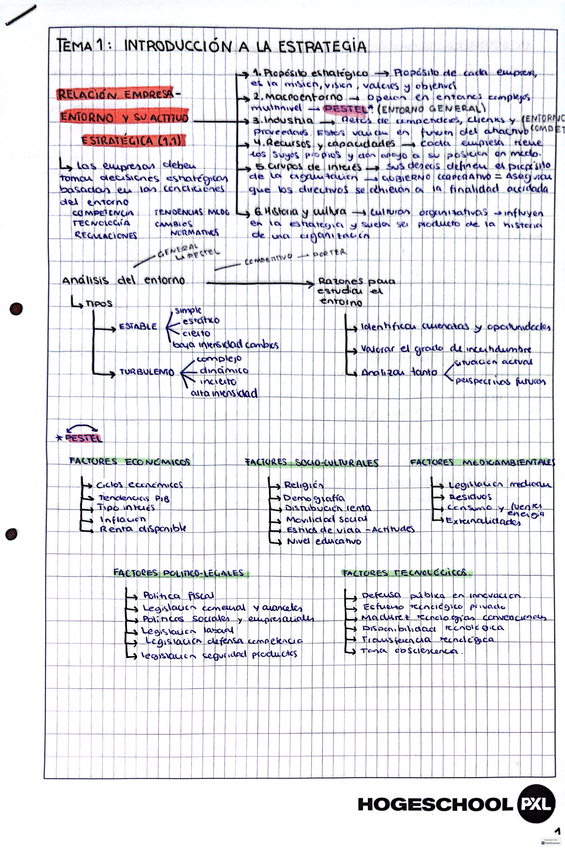 TEMA 1: INTRODUCCIÓN A LA ESTRATEGIA
RELACIÓN EMPRESA-
ENTORNO Y SU ACTITUD
ESTRATÉGICA (1.1)
↳ Las empresas deben
tomar decisiones estratégicas
basadas en las condiciones
del entorno
COMPETENCIA TENDENCIAS MCDO
TECNOLOGÍA CAMBIOS
REGULACIONES NORMATIVOS
1. Propósito estratégico → Propósito de cada empresa,
es la misión, visión, valores y objetivos
2. Macroentorno → Operan en entornos complejos
multinivel → PESTEL* (ENTORNO GENERAL)
3. Industria → Retos de competidores, clientes y (ENTORNO
proveedores. Estos varían en función del atractivo COMPET
4. Recursos y capacidades → cada empresa tiene
los suyos propios y dan apoyo a su posición en mcdo.
5. Grupos de interés → sus deseos definen el propósito
de la organización → GOBIERNO CORPORATIVO = Aseguran
que los directivos se refieran a la finalidad acordada
6. Historia y cultura → culturas organizativas → influyen
en la estrategia y suelen ser producto de la historia
de una organización
GENERAL
↳ PESTEL
COMPETITIVO → PORTER
Análisis del entorno → Razones para
estudiar el
entorno
↳ TIPOS
→ ESTABLE
simple
estático
cierto
baja intensidad cambios
→ TURBULENTO
complejo
dinámico
incierto
alta intensidad
→ Identificar amenazas y oportunidades
→ Valorar el grado de incertidumbre
→ Analizar tanto
situación actual
perspectivas futuras
* PESTEL
FACTORES ECONÓMICOS
→ Ciclos económicos
→ Tendencias PIB
→ Tipo interés
→ Inflación
→ Renta disponible
FACTORES SOCIO-CULTURALES
→ Religión
→ Demografía
→ Distribución renta
→ Movilidad social
→ Estilos de vida - Actitudes
→ Nivel educativo
FACTORES MEDIOAMBIENTALES
→ Legislación
→ Residuos
→ Consumo y fuentes
energía
→ Externalidades
FACTORES POLÍTICO-LEGALES
→ Política fiscal
→ Legislación comercial y
→ Políticas sociales y empresariales
→ Legislación laboral
→ Legislación defensa competencia
→ legislación seguridad productos
FACTORES TECNOLÓGICOS
→ Defensa pública en innovación
→ Esfuerzo tecnológico privado
→ Madurez tecnologías convencionales
→ Disponibilidad tecnológica
→ Transferencia tecnológica
→ Tasa obsolescencia.
HOGESCHOOL PXL
1